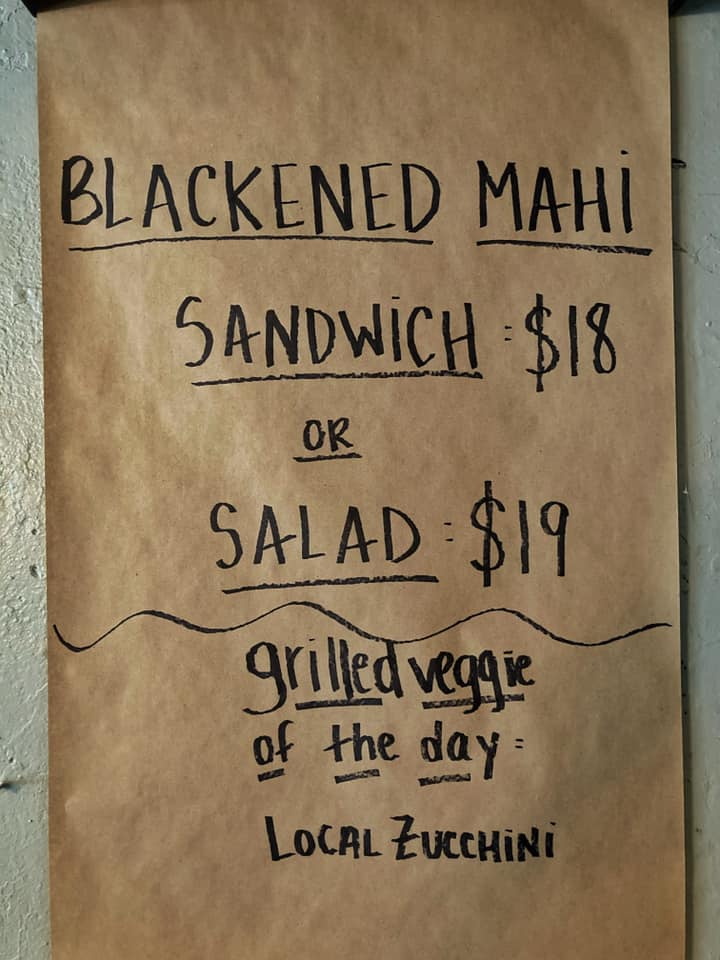 BLACKENED MAHI
SANDWICH : $18
OR
SALAD : $19
grilled veggie
of the day :
LOCAL ZUCCHINI